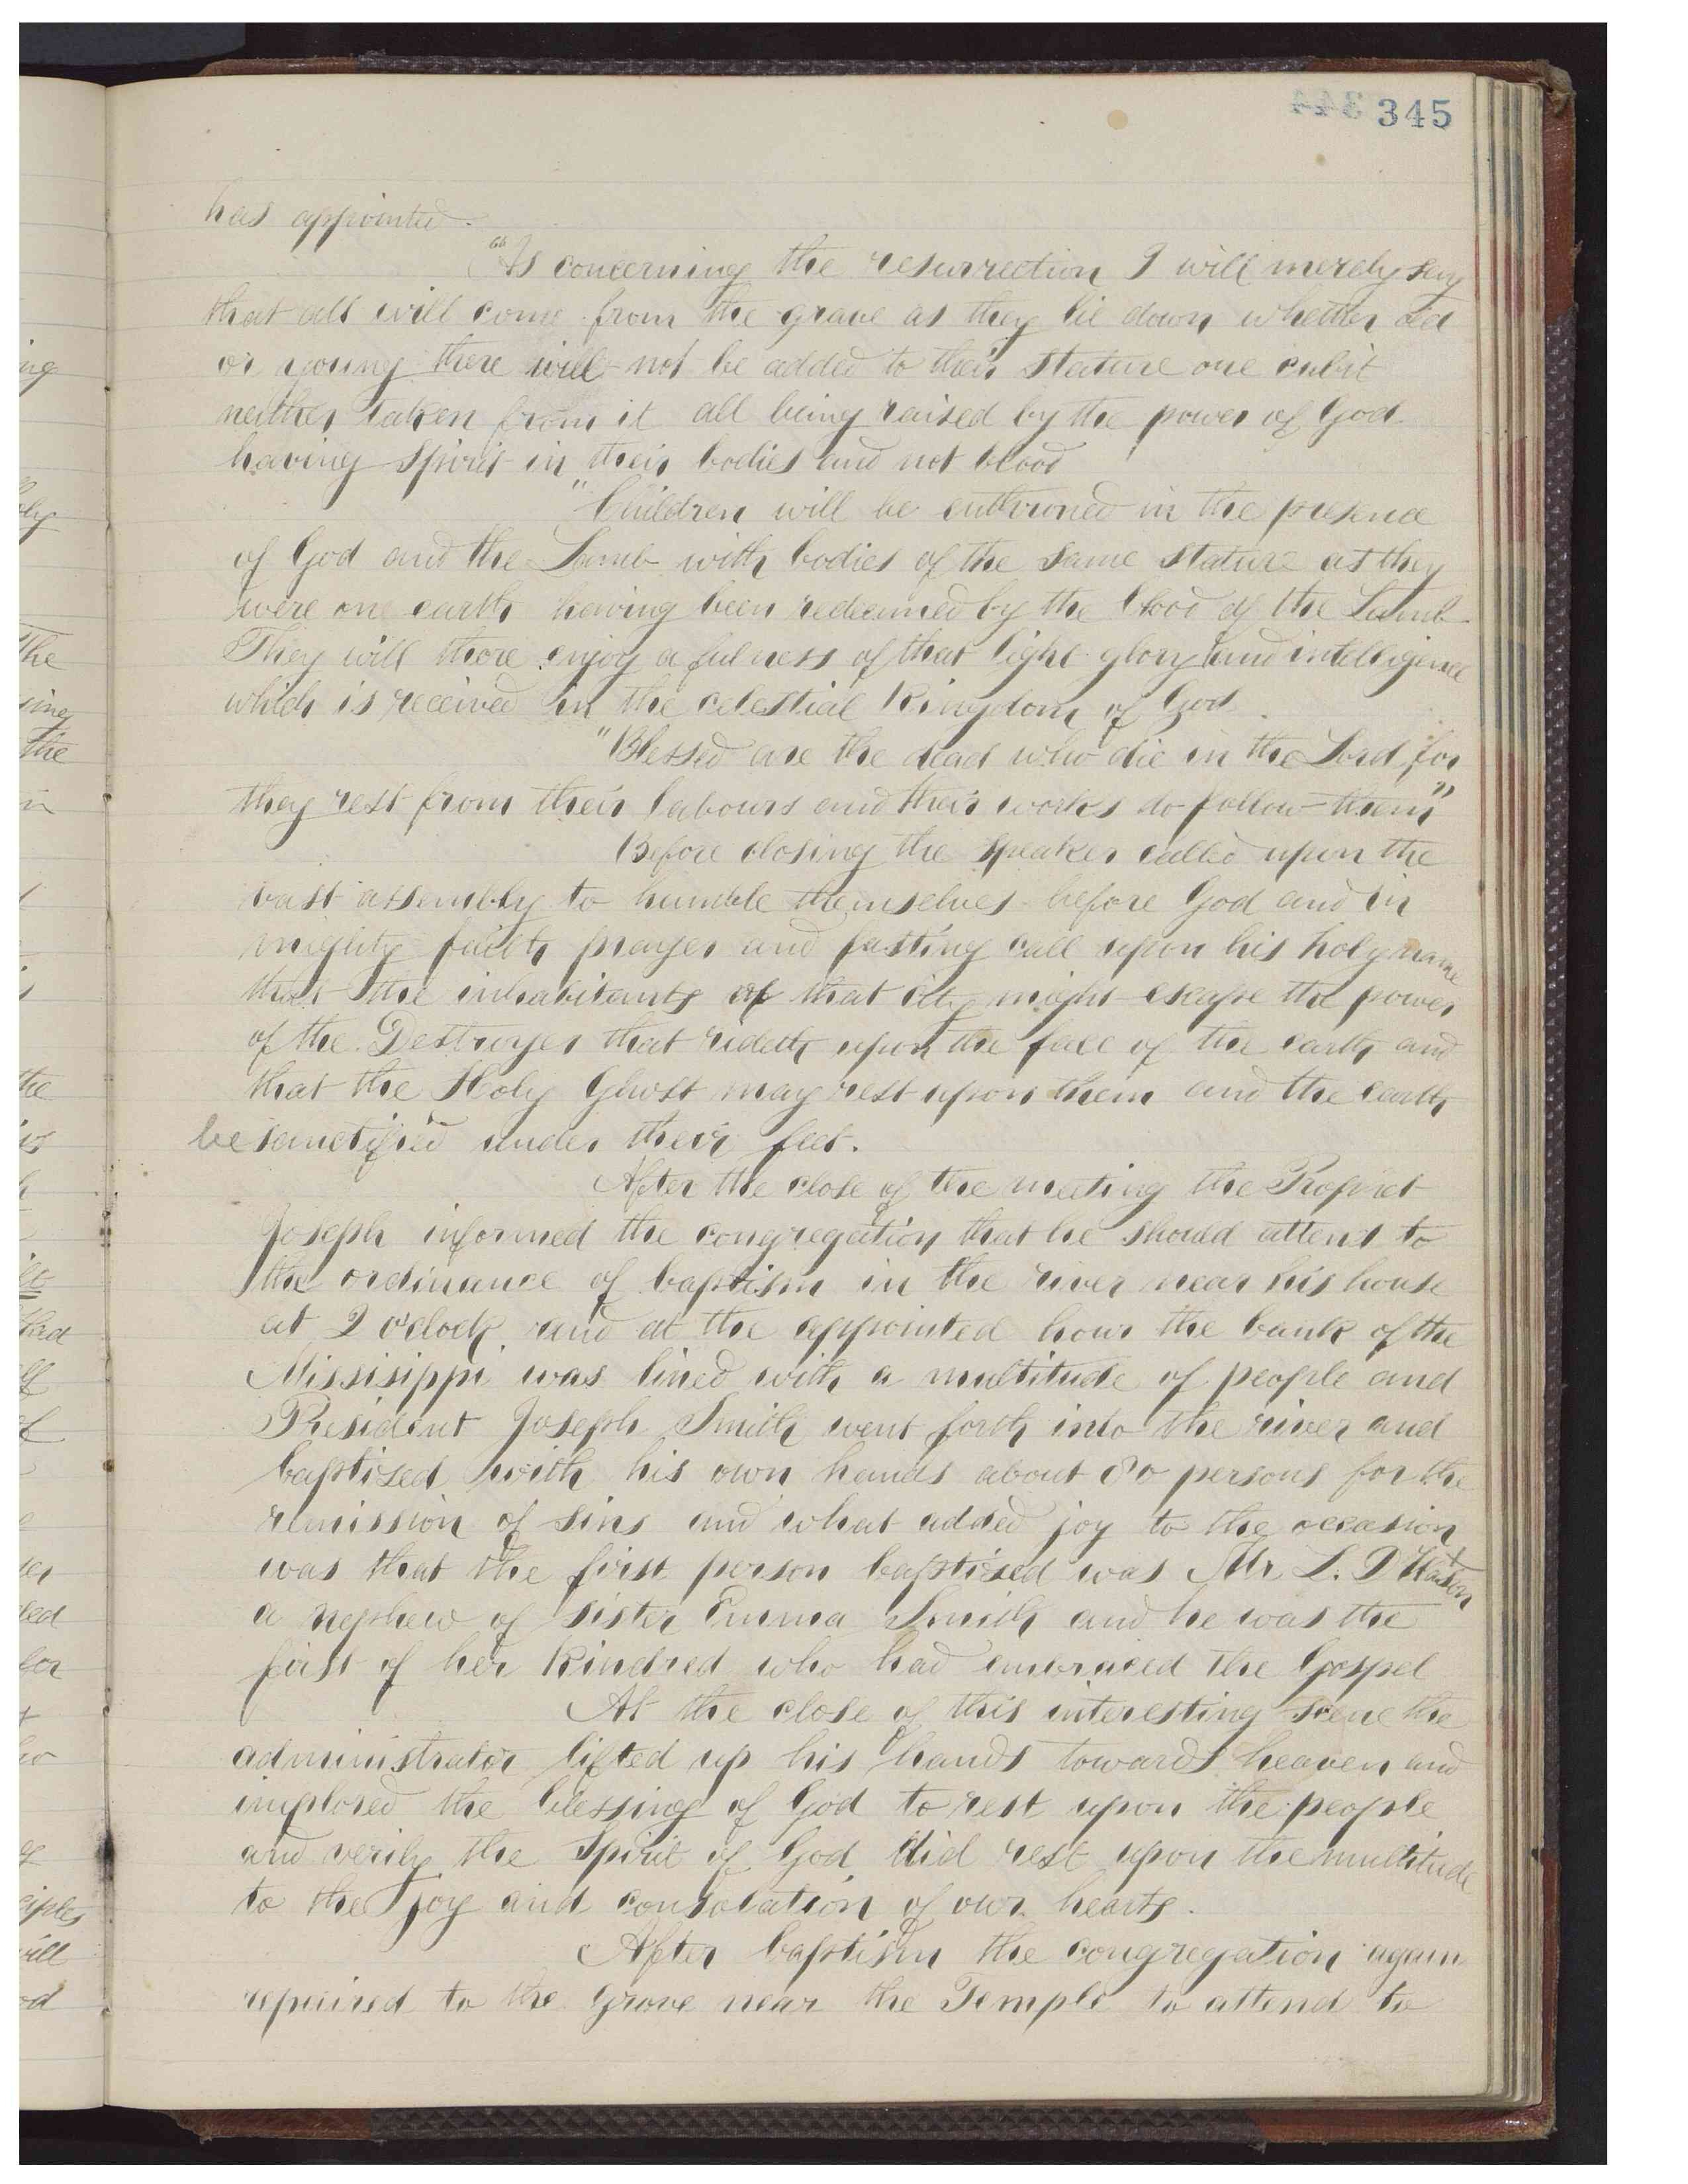 345
has appointed.
"As concerning the resurrection I will merely say
that all will come from the grave as they lie down whether old
or young there will not be added to their stature one cubit
neither taken from it all being raised by the power of God
having spirit in their bodies and not blood
"Children will be enthroned in the presence
of God and the Lamb with bodies of the same stature as they
were on earth having been redeemed by the blood of the Lamb.
They will there enjoy a fulness of that light glory and intelligence
which is received in the celestial Kingdom of God.
"Blessed are the dead who die in the Lord, for
they rest from their labours and their works do follow them"
Before closing the speaker called upon the
vast assembly to humble themselves before God and in
mighty faith prayer and fasting call upon his holy name
that the inhabitants of that city might escape the power
of the Destroyer that rideth upon the face of the earth and
that the Holy Ghost may rest upon them and the earth
be sanctified under their feet.
After the close of the meeting the Prophet
Joseph informed the congregation that he should attend to
the ordinance of baptism in the river near his house
at 2 o'clock, and at the appointed hour the bank of the
Missisippi was lined with a multitude of people and
President Joseph Smith went forth into the river and
baptised with his own hands about 80 persons for the
remission of sins and what added joy to the occasion
was that the first person baptised was Mr. L. D
a nephew of sister Emma Smith and he was the
first of her Kindred who had embraced the Gospel
At the close of this interesting scene the
administrator lifted up his hands towards heaven and
implored the blessing of God to rest upon the people
and verily the Spirit of God did rest upon the multitude
to the joy and consolation of our hearts.
After baptism the congregation again
repaired to the grove near the Temple to attend to